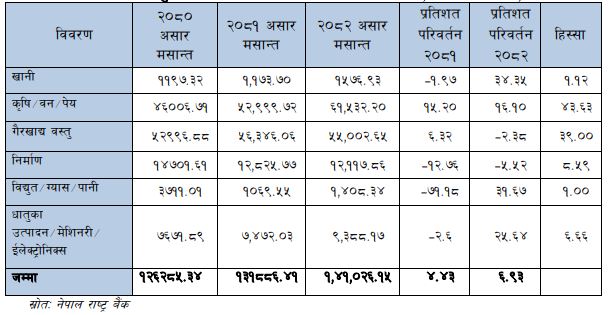 विवरण २०८० असार मसान्त २०८१ असार मसान्त २०८२ असार मसान्त प्रतिशत परिवर्तन २०८१ प्रतिशत परिवर्तन २०८२ हिस्सा
खानी ११९७.३२ १,१७३.७० १५७६.९३ -१.९७ ३४.३५ १.१२
कृषि/वन/पेय ४६००६.७१ ५२,९९९.७२ ६१,५३२.२० १५.२० १६.१० ४३.६३
गैरखाद्य वस्तु ५२९९६.८८ ५६,३४६.०६ ५५,००२.६५ ६.३२ -२.३८ ३९.००
निर्माण १४७०१.६१ १२,८२५.७७ १२,११७.८६ -१२.७६ -५.५२ ८.५९
विद्युत/ग्यास/पानी ३७११.०१ १०६९.५५ १,४०८.३४ -७१.१८ ३१.६७ १.००
धातुका उत्पादन/मेशिनरी/ईलेक्ट्रोनिक्स ७६७१.८९ ७,४७२.०३ ९,३८८.१७ -२.६ २५.६४ ६.६६
जम्मा १२६२८५.३४ १३१८८६.४१ १,४१,०२६.१५ ४.४३ ६.९३
स्रोतः नेपाल राष्ट्र बैंक